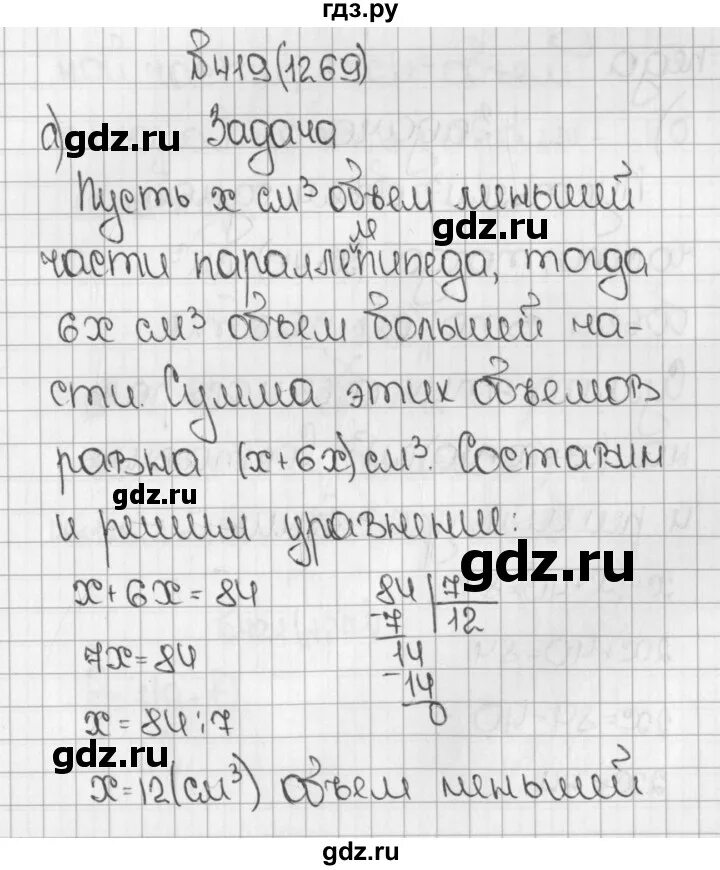 гдз.ру
В 419 (1269)
а) Задача
gdz.ru
Пусть x см³ объем меньшей
gdz.ru
ле
части параллепипеда, тогда
6x см³ объем большей ча-
сти. Сумма этих объемов
равна (x+6x) см³. Составим
gdz.ru
и решим уравнение:
gdz.ru
x+6x=84
84 | 7
-7 | 12
7x=84
14
-14
x=84:7
0
gdz.ru
x=12(см³) объем меньшей
gdz.ru